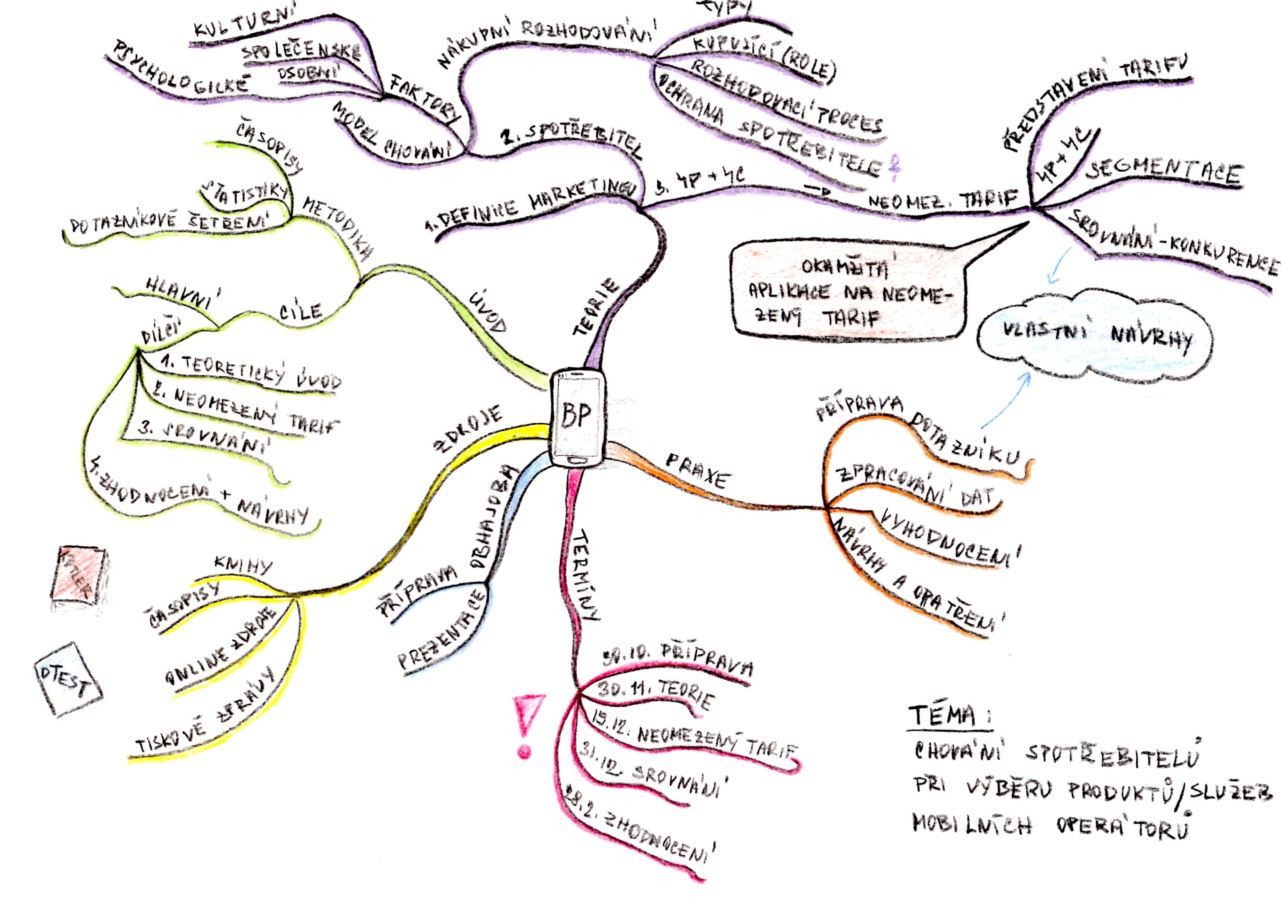 BP
TEORIE
1. DEFINICE MARKETINGU
2. SPOTŘEBITEL
FAKTORY
KULTURNÍ
SPOLEČENSKÉ
OSOBNÍ
PSYCHOLOGICKÉ
MODEL CHOVÁNÍ
NÁKUPNÍ ROZHODOVÁNÍ
TYPY
KUPUJÍCÍ (ROLE)
ROZHODOVACÍ PROCES
OCHRANA SPOTŘEBITELE
3. 4P + 4C
NEOMEZ. TARIF
PŘEDSTAVENÍ TARIFU
4P + 4C
SEGMENTACE
SROVNÁNÍ - KONKURENCE
OKAMŽITÁ
APLIKACE NA NEOME-
ZENÝ TARIF
VLASTNÍ NÁVRHY
ÚVOD
METODIKA
ČASOPISY
STATISTIKY
DOTAZNÍKOVÉ ŠETŘENÍ
CÍLE
HLAVNÍ
DÍLČÍ
1. TEORETICKÝ ÚVOD
2. NEOMEZENÝ TARIF
3. SROVNÁNÍ
4. ZHODNOCENÍ + NÁVRHY
ZDROJE
KNIHY
ČASOPISY
ONLINE ZDROJE
TISKOVÉ ZPRÁVY
KOTLER
DTEST
OBHAJOBA
PŘÍPRAVA
PREZENTACE
TERMÍNY
30.10. PŘÍPRAVA
30.11. TEORIE
15.12. NEOMEZENÝ TARIF
31.12. SROVNÁNÍ
28.2. ZHODNOCENÍ
!
PRAXE
PŘÍPRAVA DOTAZNÍKU
ZPRACOVÁNÍ DAT
VYHODNOCENÍ
NÁVRHY A OPATŘENÍ
TÉMA:
CHOVÁNÍ SPOTŘEBITELŮ
PŘI VÝBĚRU PRODUKTŮ/SLUŽEB
MOBILNÍCH OPERÁTORŮ